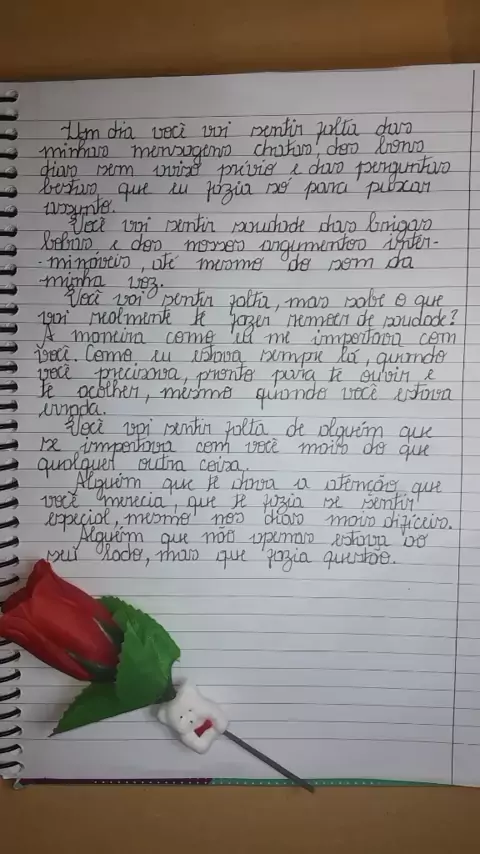 Um dia você vai sentir falta das
minhas mensagens chatas, dos bons
dias sem aviso prévio e das perguntas
bestas, que eu fazia só para puxar
assunto.
Você vai sentir saudade das brigas
bobas, e dos nossos argumentos inter-
-mináveis, até mesmo do som da
minha voz.
Você vai sentir falta, mas sabe o que
vai realmente te fazer remoer de saudade?
A maneira como eu me importava com
você. Como eu estava sempre lá, quando
você precisava, pronto para te ouvir e
te acolher, mesmo quando você estava
errada.
Você vai sentir falta de alguém que
se importava com você mais do que
qualquer outra coisa.
Alguém que te dava a atenção que
você merecia, que te fazia se sentir
especial, mesmo nos dias mais difíceis.
Alguém que não apenas estava ao
seu lado, mas que fazia questão.